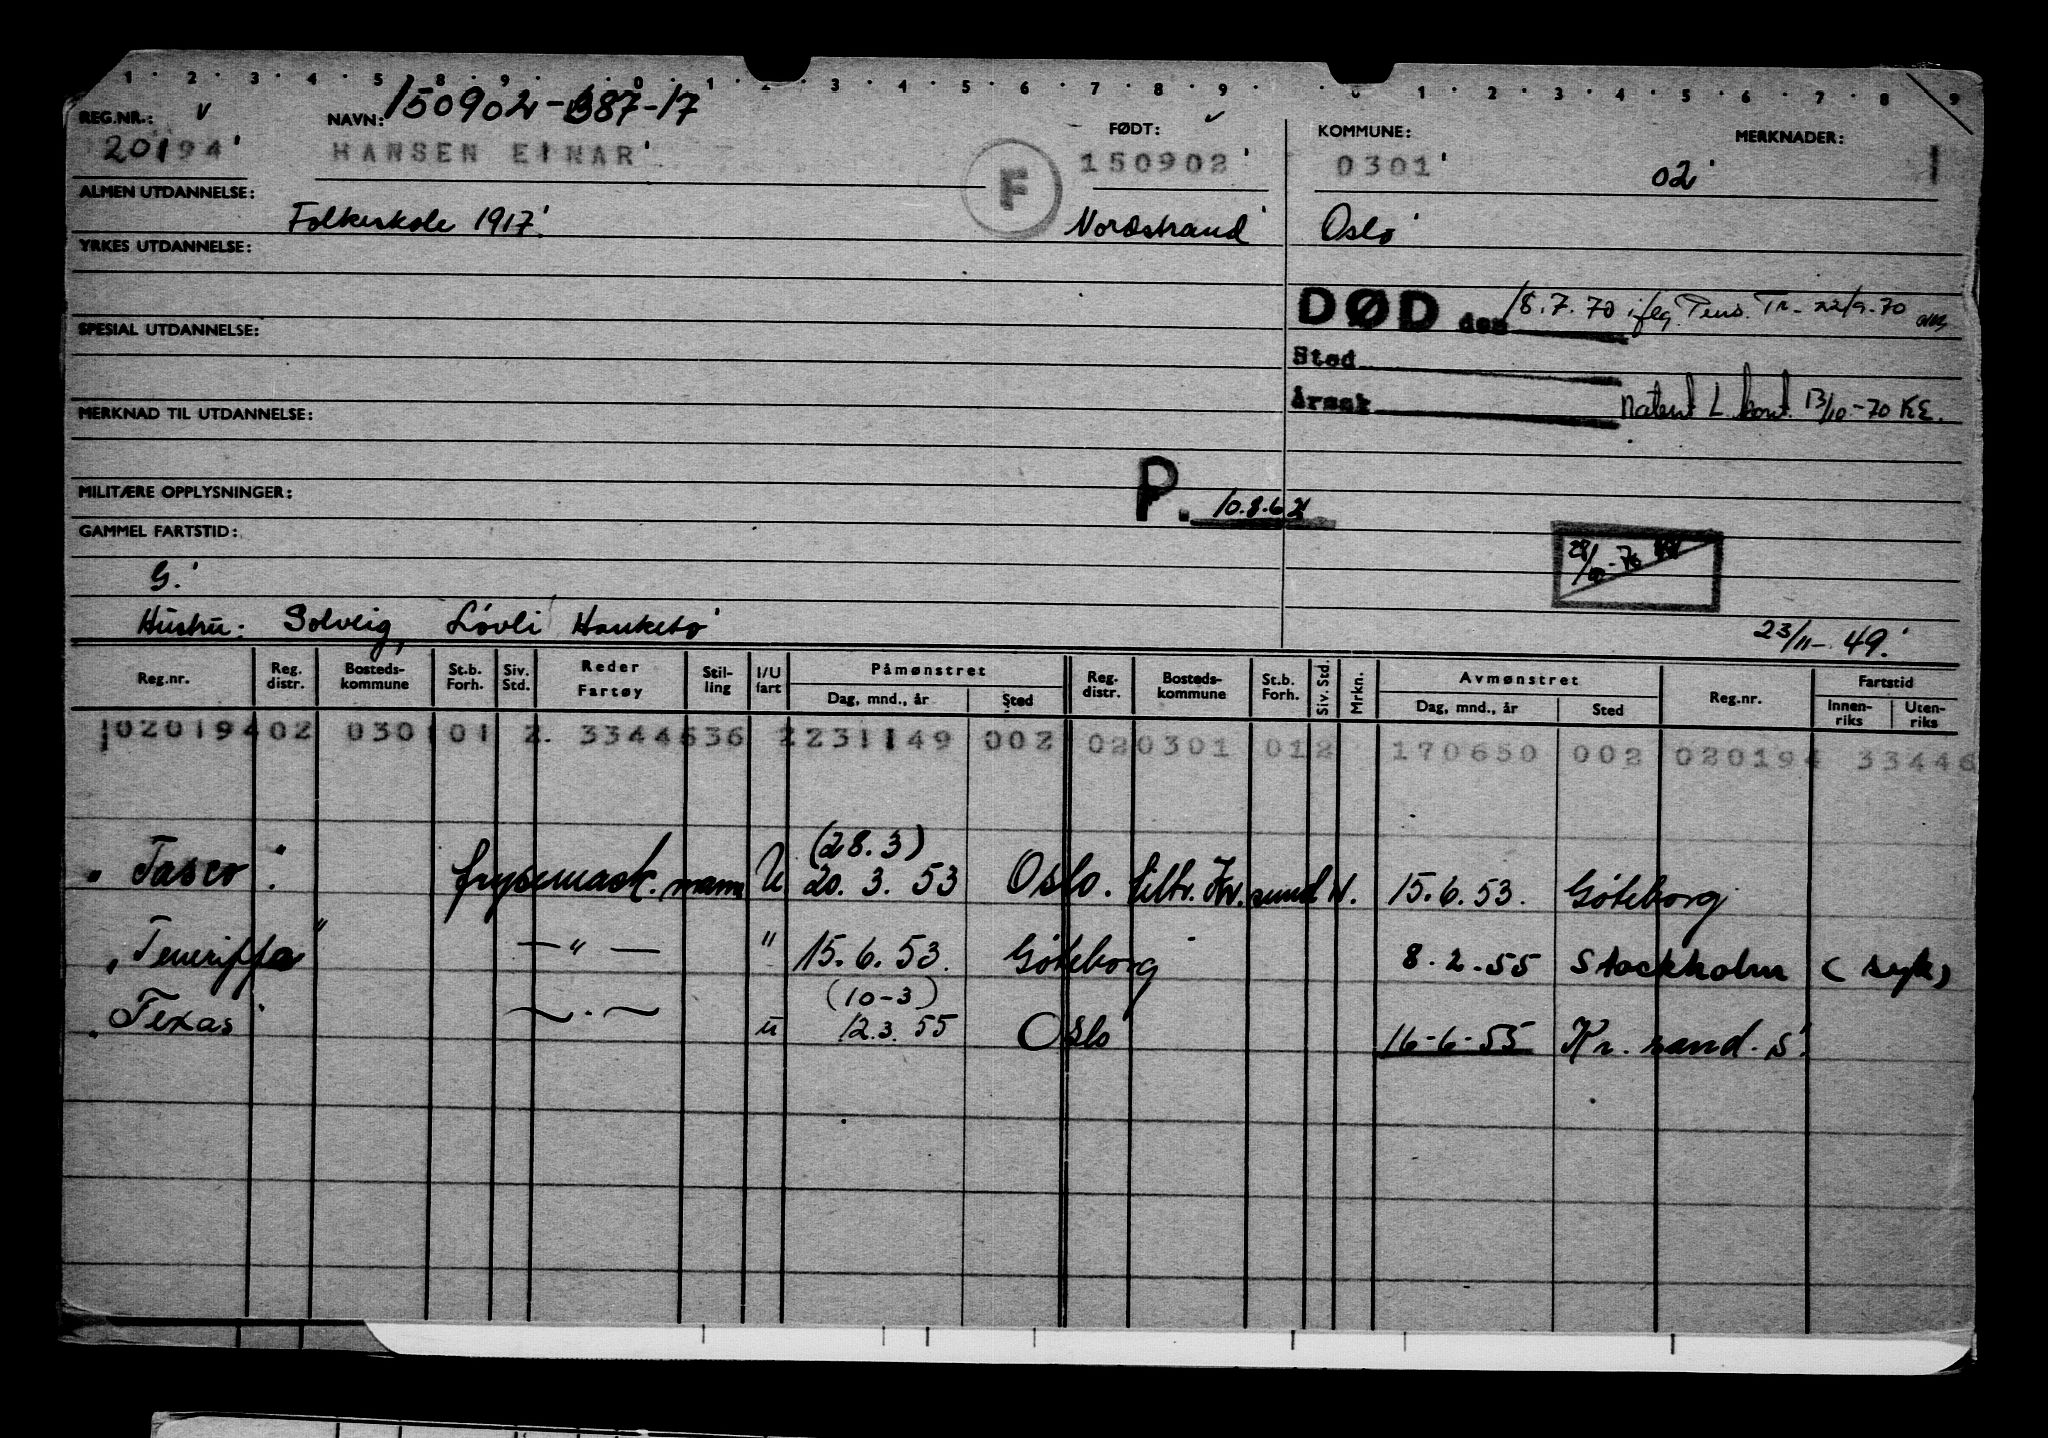 1 · 2 · 3 · 4 · 5 · 8 · 9 · 0 · 1 · 2 · 3 · 4 · 5 · 6 · 7 · 8 · 9 · 0 · 1 · 2 · 3 · 4 · 5 · 6 · 7 · 8 · 9
REG.NR.: NAVN: 150902-387-17 FØDT: KOMMUNE: MERKNADER:
20194 HANSEN EINAR F 150902 0301 02 1
ALMEN UTDANNELSE: Folkeskole 1917. Nordstrand Oslo
YRKES UTDANNELSE:
DØD den 18.7.70 ifлg. Pens. Tr. 22/9-70
SPESIAL UTDANNELSE:
Sted
Årsak Natent L. kont. 13/10-70 KE.
MERKNAD TIL UTDANNELSE:
MILITÆRE OPPLYSNINGER: P. 10.8.62
GAMMEL FARTSTID:
G.
Hustru: Solveig, Løvli Hauketo 23/11-49.
Reg.nr. Reg. distr. Bosteds-kommune St.b. Forh. Siv. Std. Reder Fartøy Stil-ling I/U fart Påmønstret Dag, mnd., år Sted Reg. distr. Bosteds-kommune St.b. Forh. Siv. Std. Mrkn. Avmønstret Dag, mnd., år Sted Reg.nr. Fartstid Innen-riks Uten-riks
102019402 0301 01 2. 3344636 2 231149 002 02 0301 01 2 170650 002 020194 33446
(28.3)
" Tasco " frysemask. mann U 20. 3. 53 Oslo. tilh. Kr. sund N. 15.6.53. Göteborg
" Teneriffa " — " — " 15.6.53. Göteborg 8.2.55 Stockholm (syk)
(10-3)
" Texas " — " — u 12.3.55 Oslo 16-6-55 Kr. sand. S.